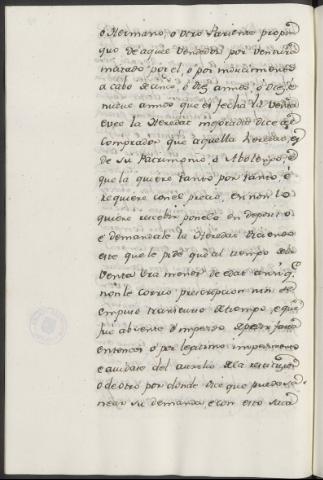 o Hermano, o otro Pariente propin
quo de aquel vendedor por ventura
matado por el, o por
a cabo de cinco, o diez annos, o diez, e
nueve annos que es fecha la venta
e veo la Heredat mejorado dice al
comprador que aquella heredat, es
de su Patrimonio, o Abolengo, e
que la quiere tanto por tanto e
requiere con el precio, e si non lo
quiere recebir ponelo en deposito
e demandale la Heredat diciendo
este que le pide que al tiempo de la
venta era menor de edat a quien
non le corrio prescripcion nin de
tiempo transcurso de tiempo, e que
fue absente o impreso
entonces o por legitimo impedimento
e ayudase del
o de otro por donde dice que pueda
near su demanda, e con esto saca